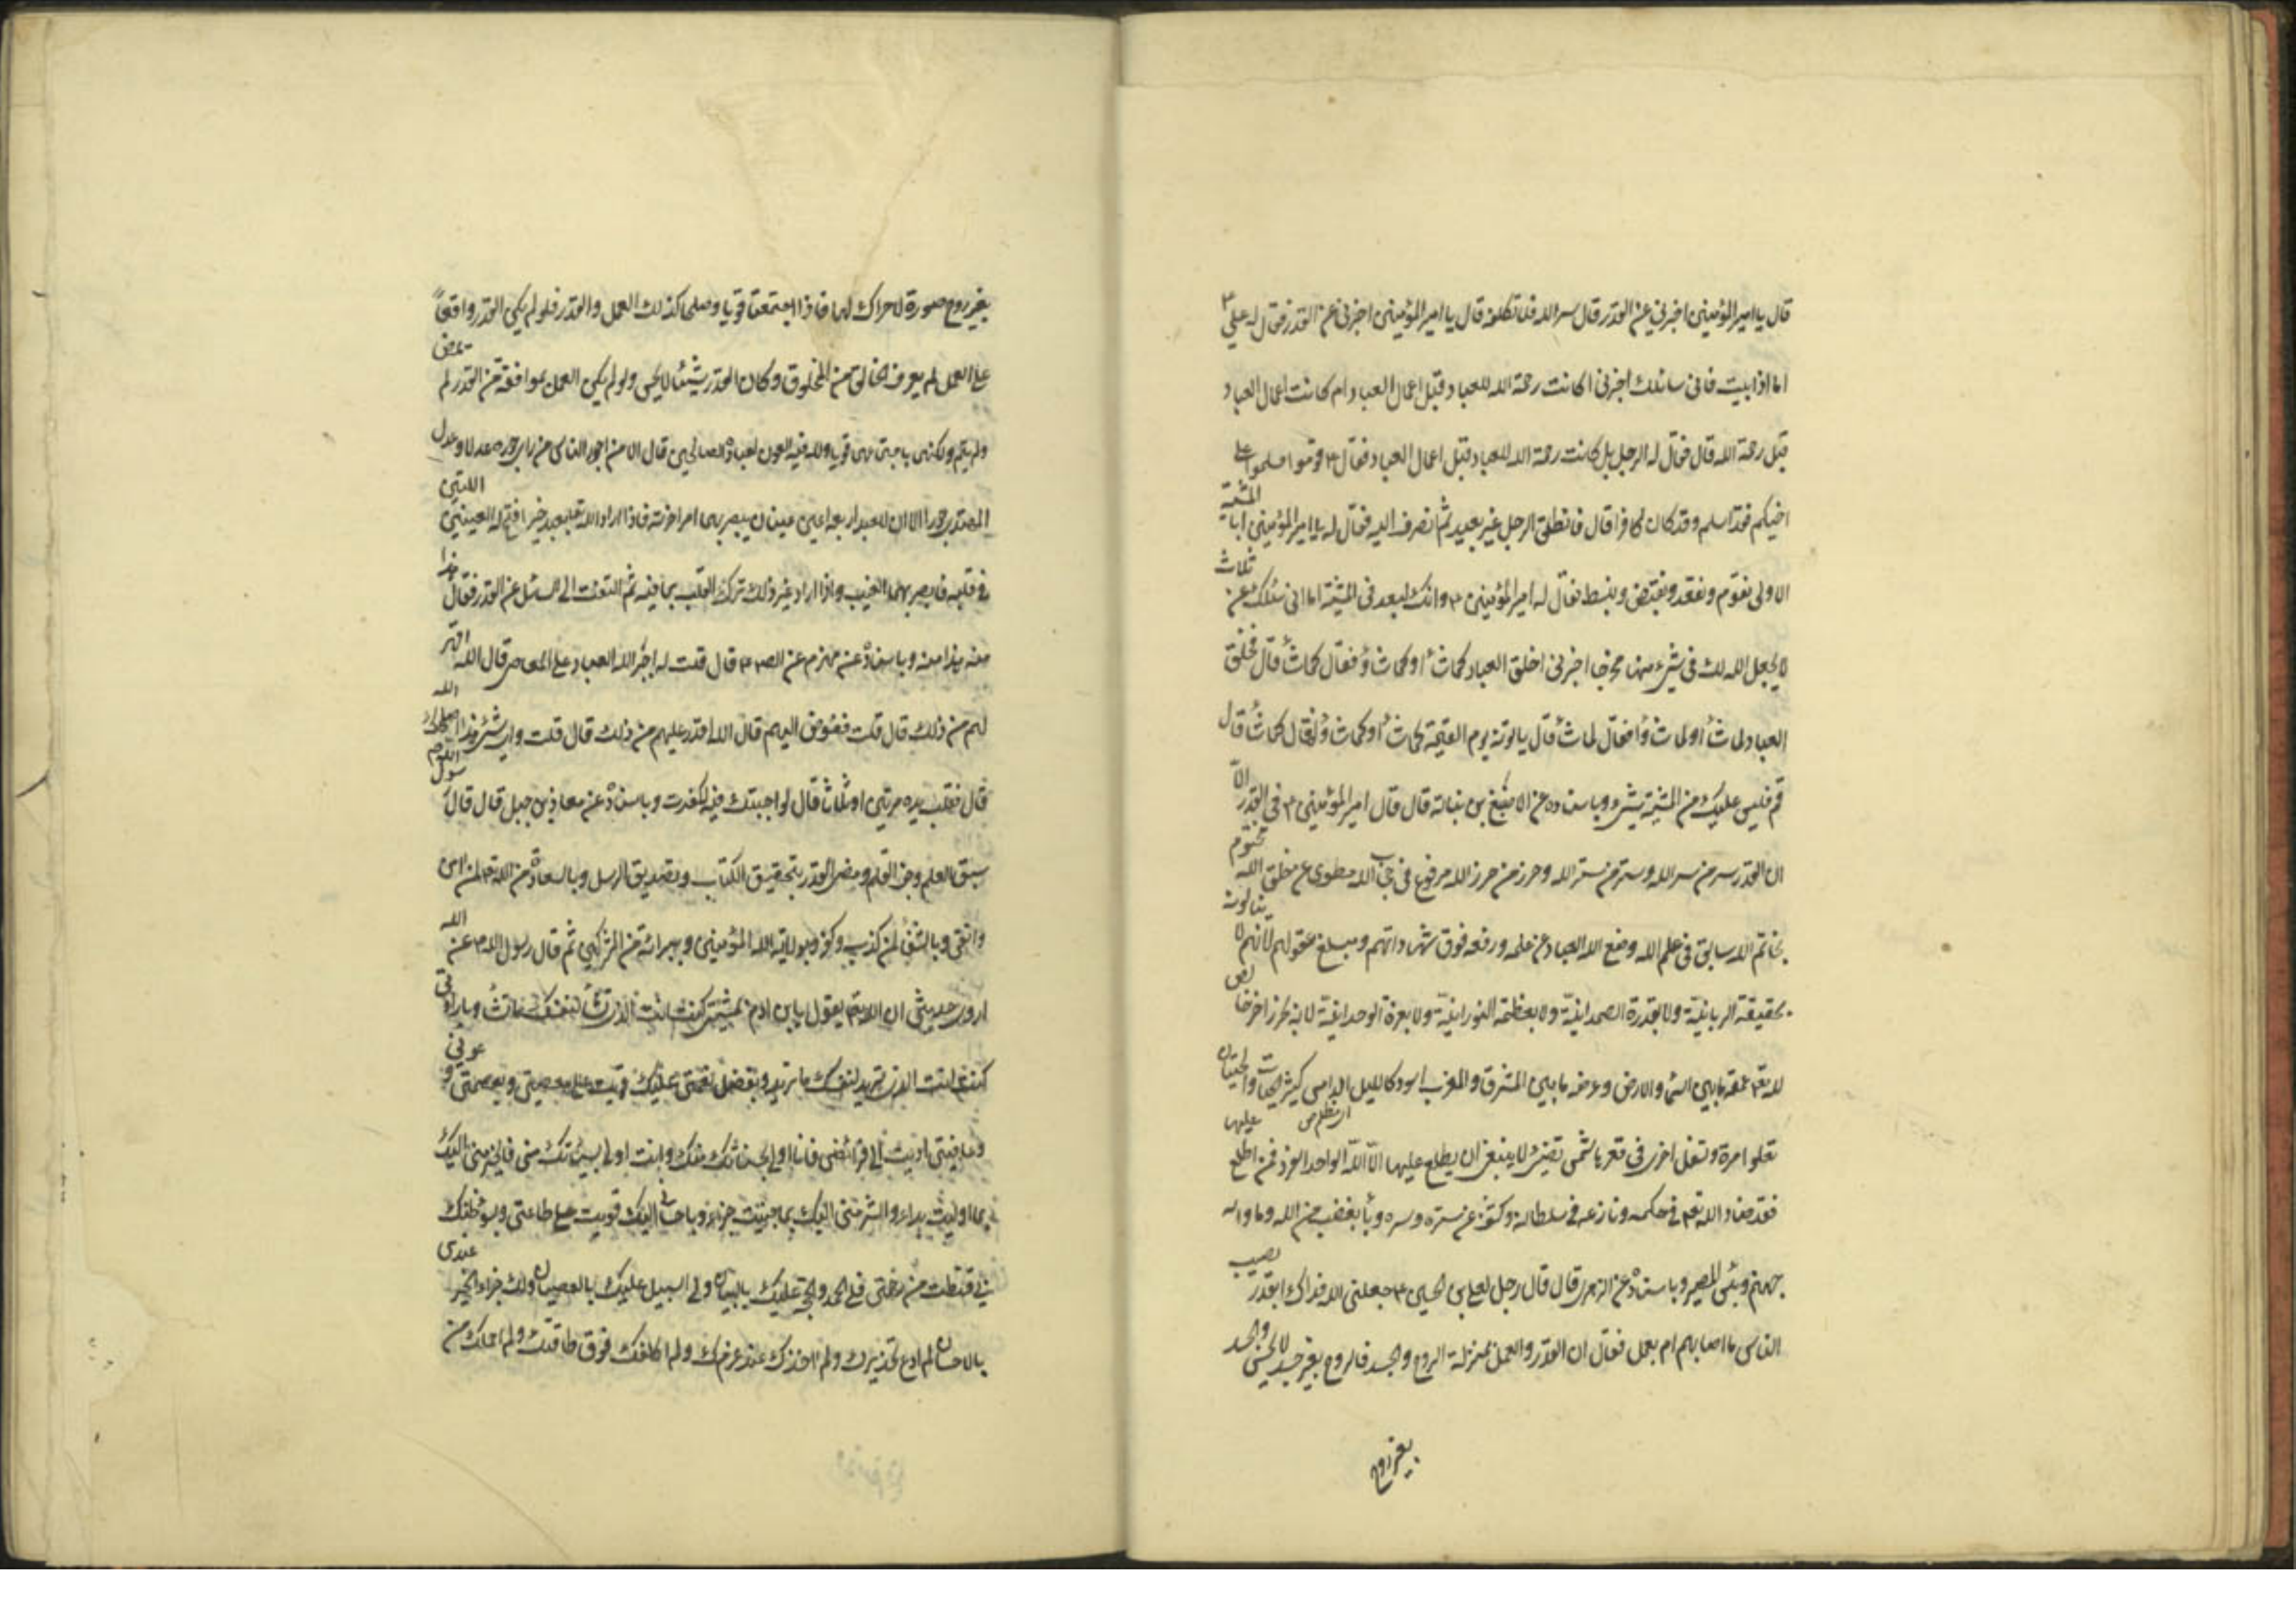 قال يا امير المؤمنين اخبرني عن القدر قال سر الله فلا تكلفه قال يا امير المؤمنين اخبرني عن القدر فقال له علي ع
اما اذا ابيت فاني سائلك اخبرني اكانت رحمة الله للعباد قبل اعمال العباد ام كانت اعمال العباد
قبل رحمة الله قال فقال له الرجل بل كانت رحمة الله للعباد قبل اعمال العباد فقال ع قوموا فسلموا على
اخيكم فقد اسلم وقد كان كافرا قال فانطلق الرجل غير بعيد ثم انصرف اليه فقال له يا امير المؤمنين ابالمشية
الاولى نقوم ونقعد ونقبض ونبسط فقال له امير المؤمنين ع وانك لبعد في المشية اما اني سئلك عن ثلاث
لا يجعل الله لك في شيء منها مخرجا اخبرني اخلق العباد كما شاء او كما شاؤا فقال كما شاء قال فخلق
العباد لما شاء او لما شاؤا فقال لما شاء قال ياتونه يوم القيمة كما شاء او كما شاؤا فقال كما شاء قال
قم فليس عليك من المشية شيء وباسناده عن الاصبغ بن نباتة قال قال امير المؤمنين ع في القدر الا
ان القدر سر من سر الله وستر من ستر الله وحرز من حرز الله مرفوع في حجاب الله مطوى عن خلق الله مختوم
بخاتم الله سابق في علم الله وضع الله العباد عن علمه ورفعه فوق شهاداتهم ومبلغ عقولهم لانهم لا ينالونه
بحقيقة الربانية ولا بقدرة الصمدانية ولا بعظمة النورانية ولا بعزة الوحدانية لانه بحر زاخر خالص
لله تعم عمقه ما بين السماء والارض وعرضه ما بين المشرق والمغرب اسود كالليل الدامس كثير الحيات والحيتان
اى مظلم ص
تعلو امرة وتسفل اخرى في قعرها شمس تضيء لا ينبغي ان يطلع عليها الا الله الواحد الفرد فمن اطلع عليها
فقد ضاد الله تعم في حكمه ونازعه في سلطانه وكشف عن ستره وسره وباء بغضب من الله وماواه
جهنم وبئس المصير وباسناده عن الزهرى قال قال رجل لعلي بن الحسين ع جعلني الله فداك ابقدر يصيب
الناس ما اصابهم ام بعمل فقال ان القدر والعمل بمنزلة الروح والجسد فالروح بغير جسد لا تحس والجسد
بغير روح
بغير روح صورة لا حراك لها فاذا اجتمعتا قويا وصلحا كذلك العمل والقدر فلو لم يكن القدر واقعا
على العمل لم يعرف الخالق من المخلوق وكان القدر شيئا لا يحس ولو لم يكن العمل بموافقة من القدر لم يمض
ولم يتم ولكنهما باجتماعهما قويا ولله فيه العون لعباده الصالحين قال الا من اجور الناس من راى جوره عدلا وعدل
المهتدى جورا الا ان للعبد اربعة اعين عينان يبصر بهما امر اخرته فاذا اراد الله تعم بعبد خيرا فتح له العينين اللتين
في قلبه فابصر بهما الغيب واذا اراد غير ذلك ترك القلب بما فيه ثم التفت الى السائل عن القدر فقال هذا
منه هذا منه وباسناده عن مهزم عن الص ع قال قلت له اجبر الله العباد على المعاصي قال الله اقهر
لهم من ذلك قال قلت ففوض اليهم قال الله اقدر عليهم من ذلك قال قلت واى شيء هذا اصلحك الله
قال فقلب يده مرتين او ثلاثا قال لو اجبتك فيه لكفرت وباسناده عن معاذ بن جبل قال قال رسول
سبق العلم وجف القلم ومضى القدر بتحقيق الكتاب وتصديق الرسل وبالسعادة من الله تعم لمن امن
واتقى وبالشقاء لمن كذب وكفر وبولاية الله المؤمنين وببرائته من المشركين ثم قال رسول الله ص عن الله
اروى حديثي ان الله تعم يقول يا بن ادم بمشيتي كنت انت الذى تشاء لنفسك ما تشاء وبارادتي
كنت انت الذى تريد لنفسك ما تريد وبفضل نعمتي عليك قويت على معصيتي وبعصمتي وعوني
وعافيتي اديت الى فرائضي فانا اولى بحسناتك منك وانت اولى بسيئاتك مني فالخير مني اليك
بما اوليت بداء والشر مني اليك بما جنيت جزاء وباحساني اليك قويت على طاعتي وبسوء ظنك
بي قنطت من رحمتي فلي الحمد والحجة عليك بالبيان ولي السبيل عليك بالعصيان ولك جزاء الخير عندى
بالاحسان لم ادع تحذيرك ولم اخذك عند غرتك ولم اكلفك فوق طاقتك ولم احملك من